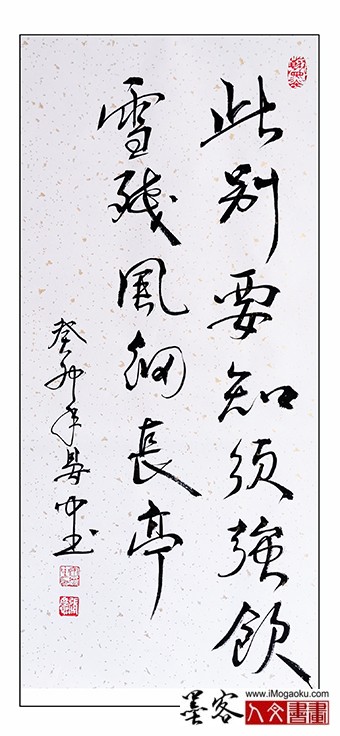 此别要知须強飲
雪残風細長亭
癸卯年晏中书
墨客
www.iMogaoku.com
人文書畫